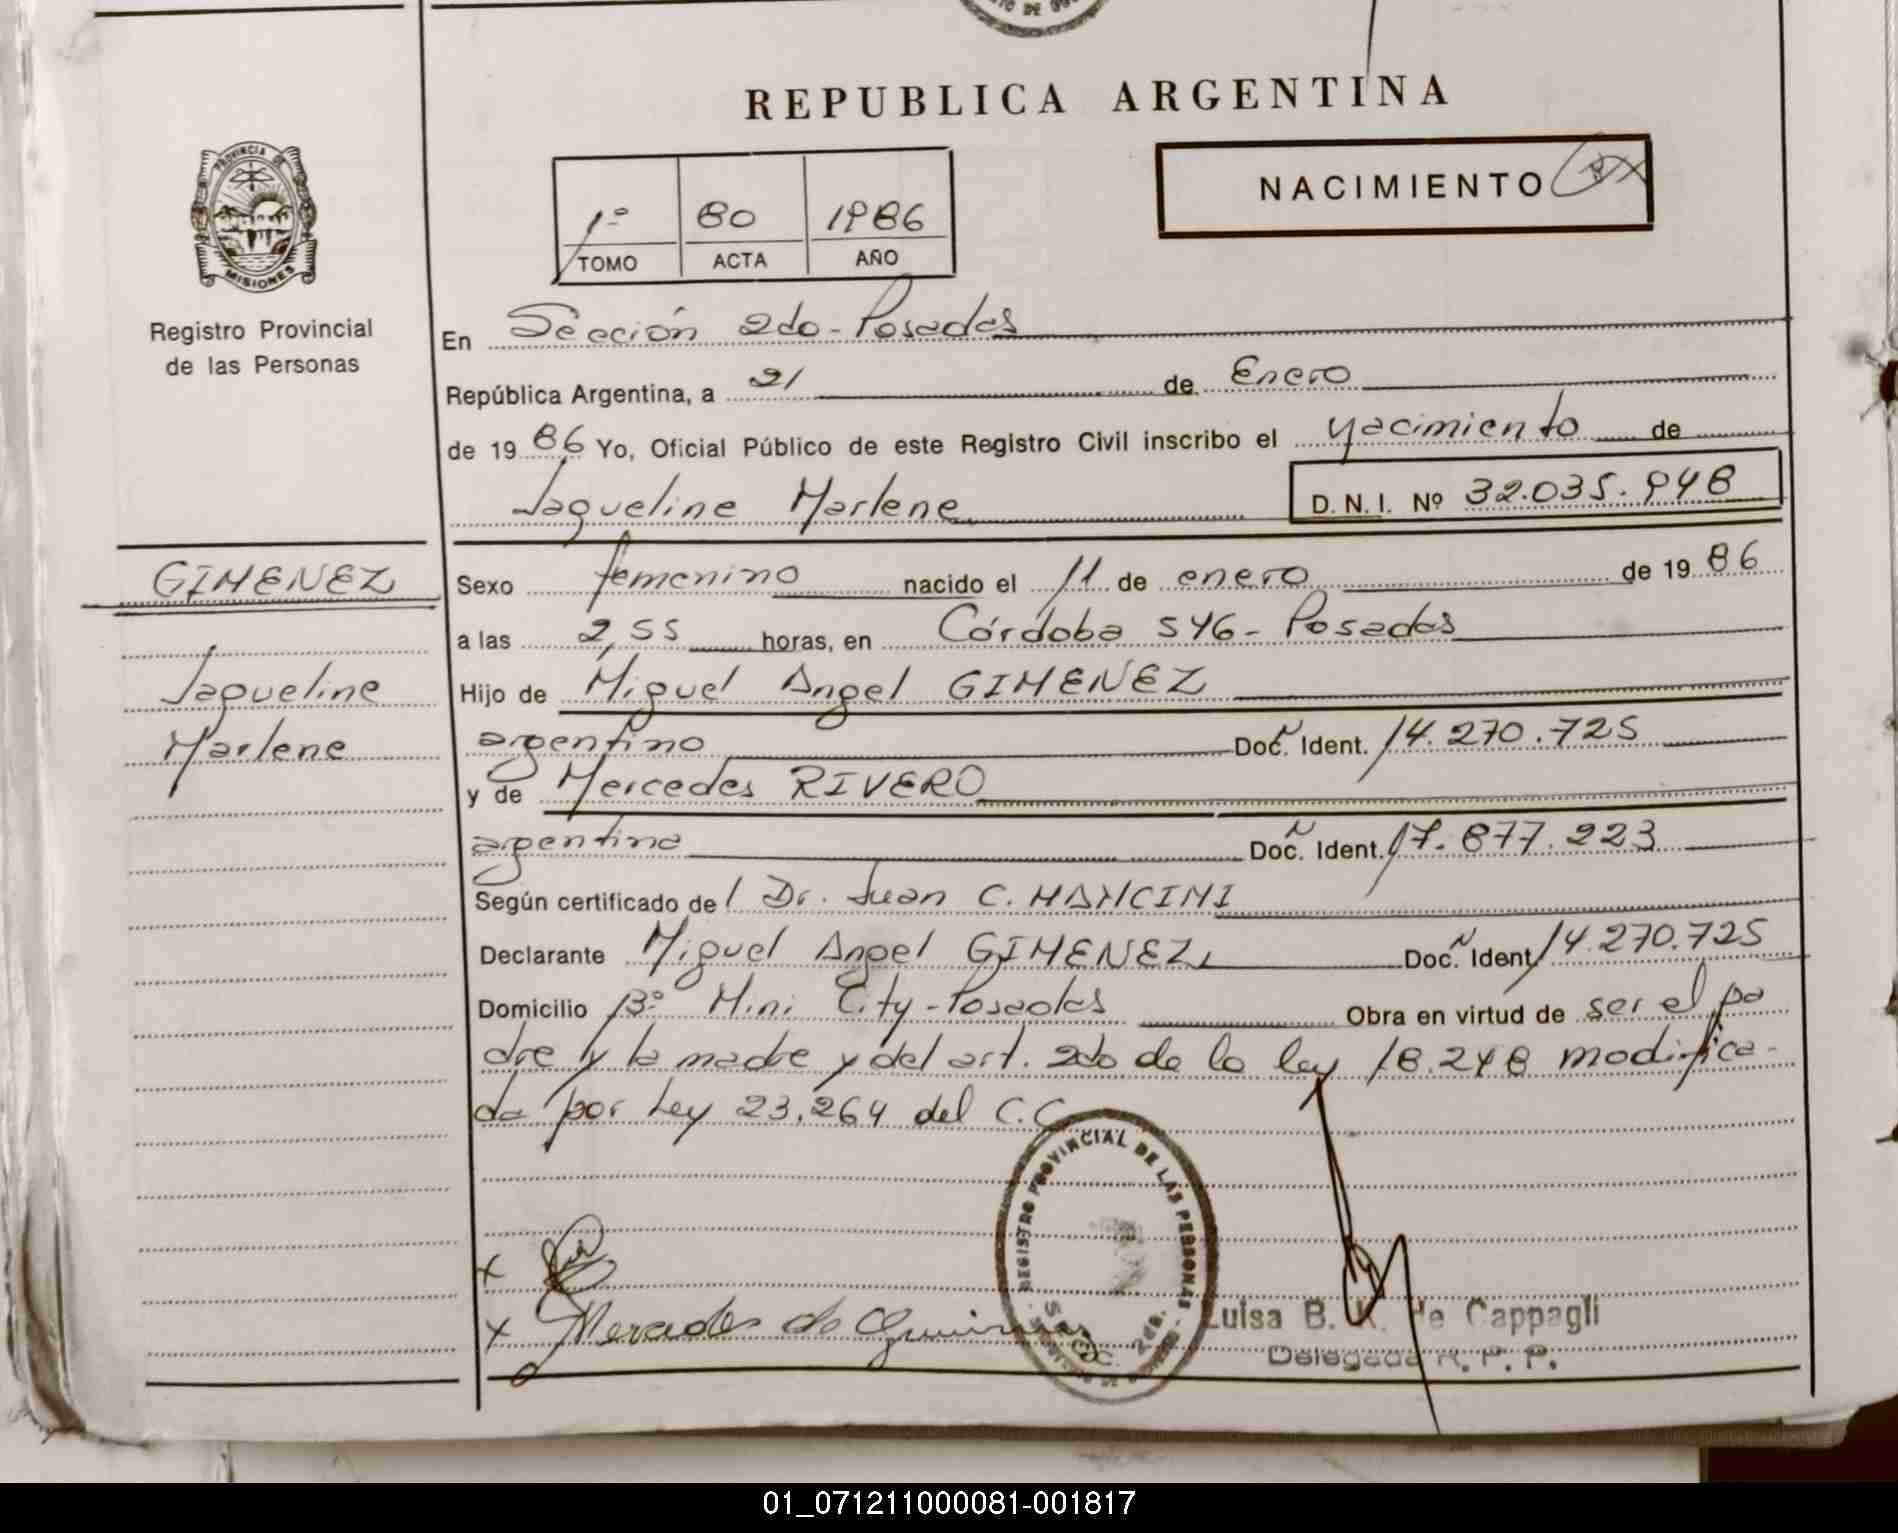 REPUBLICA ARGENTINA
PROVINCIA DE
MISIONES
Registro Provincial
de las Personas
1º 80 1986
TOMO ACTA AÑO
NACIMIENTO
En Sección 2do-Posadas
República Argentina, a 21 de Enero
de 19 86 Yo, Oficial Público de este Registro Civil inscribo el nacimiento de
Jaqueline Marlene D. N. I. Nº 32.035.948
GIMENEZ
Jaqueline
Marlene
Sexo femenino nacido el 11 de enero de 19 86
a las 2,55 horas, en Córdoba 546- Posadas
Hijo de Miguel Angel GIMENEZ
argentino Doc. Ident. 14.270.725
y de Mercedes RIVERO
argentina Doc. Ident. 17.877.223
Según certificado del Dr. Juan C. MANCINI
Declarante Miguel Angel GIMENEZ Doc. Ident. 14.270.725
Domicilio Bº Mini City-Posadas Obra en virtud de ser el pa
dre y la madre y del art. 2do de la ley 18.248 modifica-
da por Ley 23.264 del C.C.
REGISTRO PROVINCIAL DE LAS PERSONAS
Mercedes de
Luisa B. de Cappagli
Delegada R. P. P.
01_071211000081-001817